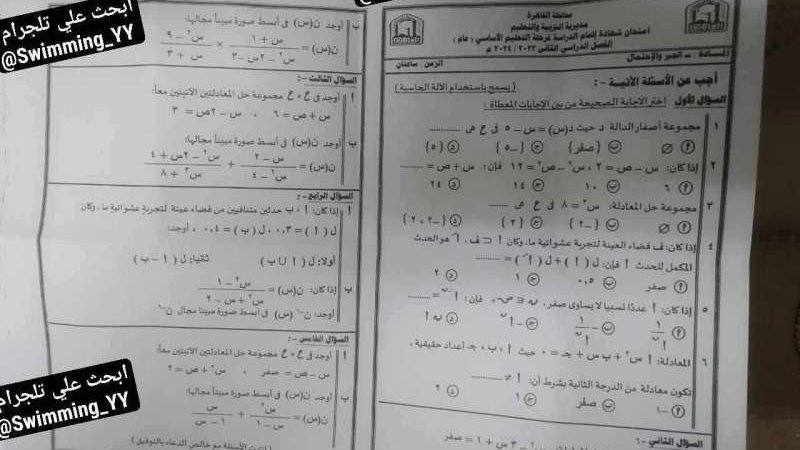 محافظة القاهرة
مديرية التربية والتعليم
امتحان شهادة إتمام الدراسة لمرحلة التعليم الأساسي ( عام )
الفصل الدراسي الثاني ٢٠٢٣ / ٢٠٢٤ م
المادة : الجبر والاحتمال
الزمن ساعتان
أجب عن الأسئلة الآتية :-
( يسمح باستخدام الآلة الحاسبة )
السؤال الأول : اختر الإجابة الصحيحة من بين الإجابات المعطاة :
١ مجموعة أصفار الدالة د حيث د(س) = س - ٥ في ح هي ..........
أ ∅ ب { صفر } ج { -٥ } د { ٥ }
٢ إذا كان : س - ص = ٢ ، س٢ - ص٢ = ١٢ فإن : س + ص = ..........
أ ٦ ب ١٠ ج ١٤ د ٢٤
٣ مجموعة حل المعادلة : س٢ = ٨ في ح هي ..........
أ ∅ ب { -٢ } ج { ٢ } د { ٢ ، -٢ }
٤ إذا كان : ف فضاء العينة لتجربة عشوائية ما ، وكان أ ⊂ ف ، أَ هو الحدث
المكمل للحدث أ فإن : ل ( أ ) + ل ( أَ ) = ..........
أ صفر ب ٠,٥ ج ١ د ٢
٥ إذا كان : أ عددًا نسبيا لا يساوى صفر ، ن ∈ ص+ ، فإن : أ-ن = ..........
٦ المعادلة : أ س٢ + ب س + جـ = ٠ حيث أ ، ب ، جـ أعداد حقيقية ،
تكون معادلة من الدرجة الثانية بشرط أن : أ ≠ ..........
أ -١ ب صفر ج ١ د ٢
السؤال الثاني :-
س٢ - ٣ س + ١ = صفر
ب أوجد ن(س) في أبسط صورة مبينا مجالها :
ن(س) = س + ١ / س٢ - ٢س - ٣ × س٢ - ٩ / س + ٣
السؤال الثالث :-
أ أوجد في ح × ح مجموعة حل المعادلتين الآتيتين معا :
س + ص = ٦ ، س - ٢ص = ٣
ب أوجد ن(س) في أبسط صورة مبينا مجالها :
ن(س) = س - ٢ / س٢ - ٤ + س٢ - ٢س + ٤ / س٣ + ٨
السؤال الرابع :-
أ إذا كان : أ ، ب حدثين متنافيين من فضاء عينة لتجربة عشوائية ما ، وكان
ل ( أ ) = ٠,٣ ، ل ( ب ) = ٠,٤ ، أوجد :
أولا : ل ( أ ∪ ب ) ثانيا : ل ( أ - ب )
ب إذا كان : ن(س) = س٢ - ١ / س٢ + س - ٢
أوجد : ن-١ (س) في أبسط صورة مبينا مجال ن-١
السؤال الخامس :-
أ أوجد في ح × ح مجموعة حل المعادلتين الآتيتين معا :
س - ص = صفر ، س٢ + ص = ٢
ب أوجد ن(س) في أبسط صورة مبينا مجالها :
ن(س) = س٢ / س - ١ + س / ١ - س
ابحث علي تلجرام
@Swimming_YY
ابحث علي تلجرام
@Swimming_YY